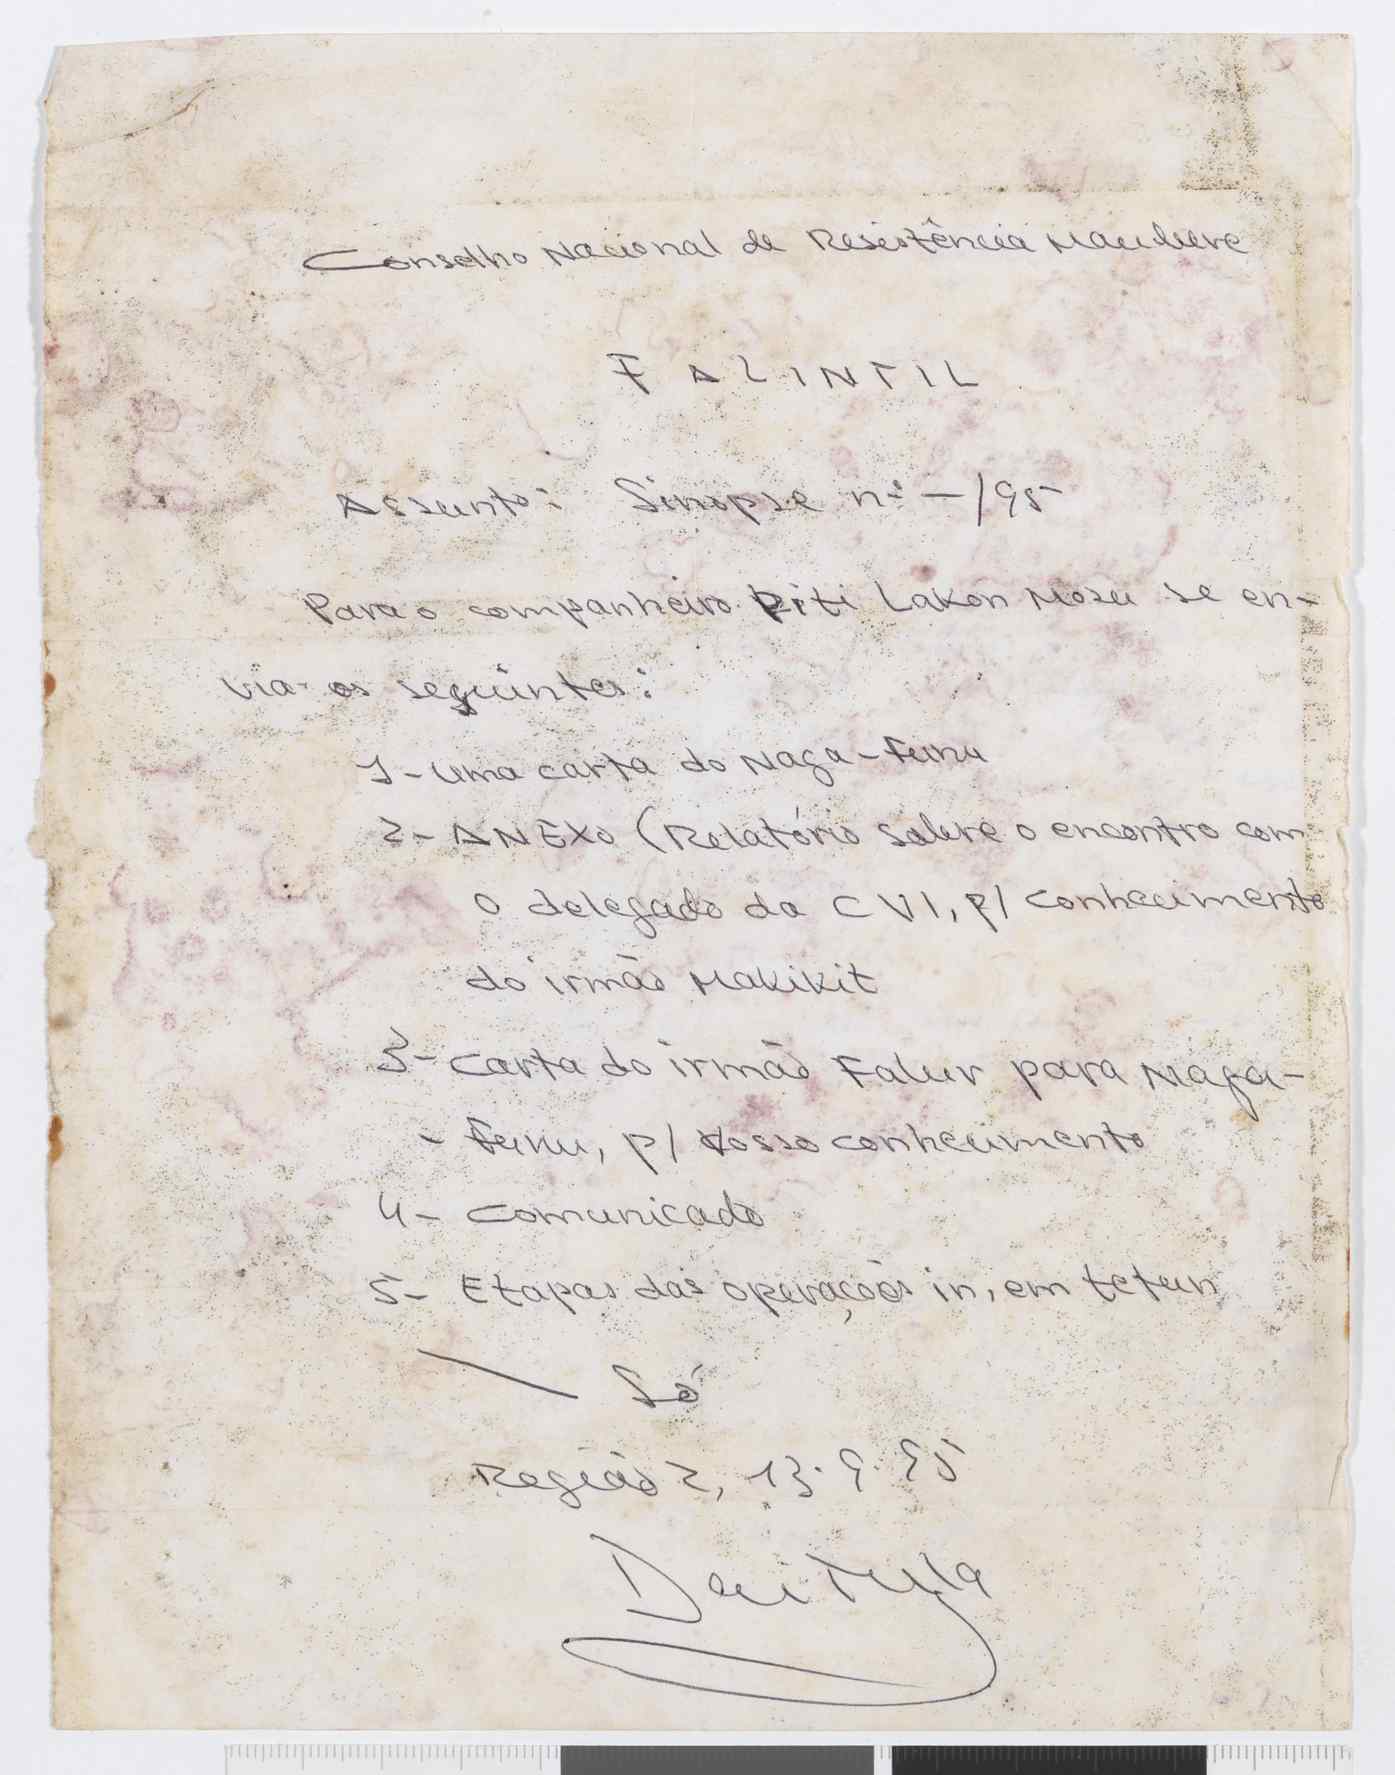 Conselho Nacional de Resistência Maubere
FALINTIL
Assunto: Sinopse nº —/95
Para o companheiro Riti Lakon Mosu se en-
via os seguintes:
1- Uma carta do Naga-Funu
2- ANEXO (Relatório sobre o encontro com
o delegado da CVI, p/ conhecimento
do irmão Makikit
3- Carta do irmão Falur para Naga-
- Funu, p/ Vosso conhecimento
4- Comunicado
5- Etapas das operações in, em tetun
Só
Região 2, 13.9.95